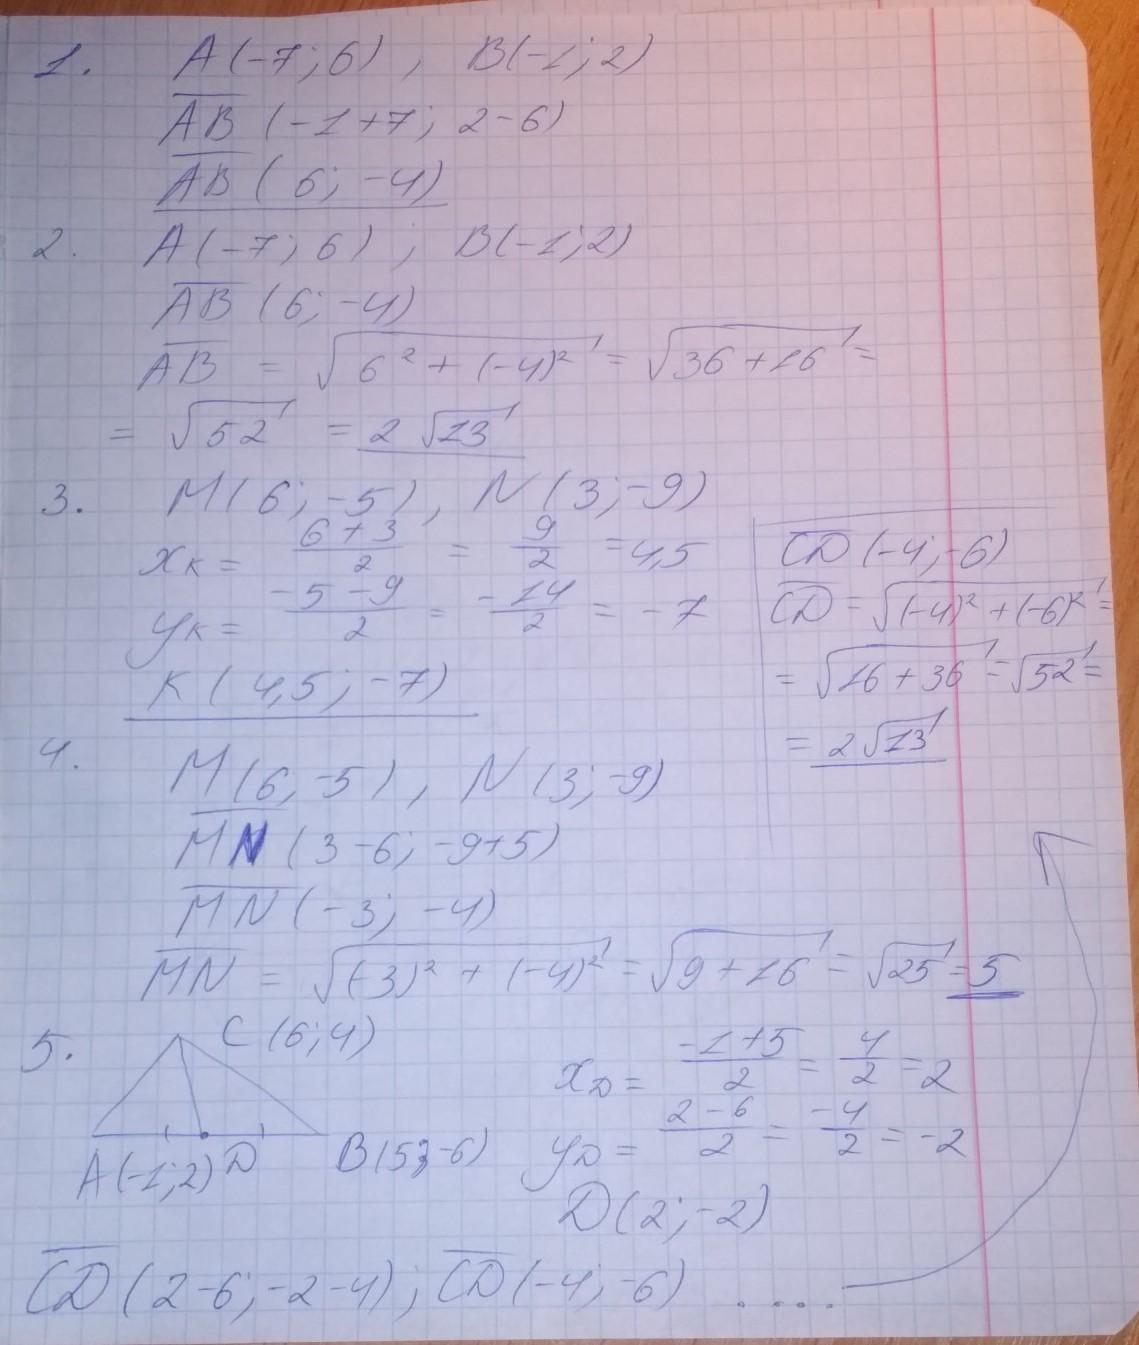 1. A(-7; 6), B(-1; 2)
AB (-1+7; 2-6)
AB (6; -4)
2. A(-7; 6); B(-1; 2)
AB (6; -4)
AB = √6² + (-4)² = √36+16 =
= √52 = 2√13
3. M(6; -5), N(3; -9)
xк = 6+3/2 = 9/2 = 4,5
yк = -5-9/2 = -14/2 = -7
K(4,5; -7)
CD (-4; -6)
CD = √(-4)² + (-6)² =
= √16+36 = √52 =
= 2√13
4. M(6; -5), N(3; -9)
MN (3-6; -9+5)
MN (-3; -4)
MN = √(-3)² + (-4)² = √9+16 = √25 = 5
5. C(6; 4)
A(-1; 2) D B(5; -6)
xD = -1+5/2 = 4/2 = 2
yD = 2-6/2 = -4/2 = -2
D(2; -2)
CD (2-6; -2-4); CD (-4; -6) .....